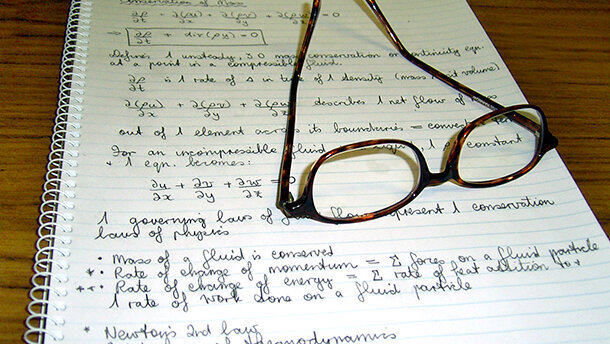 Conservation of Mass
∂ρ/∂t + ∂(ρu)/∂x + ∂(ρv)/∂y + ∂(ρw)/∂z = 0
⇒ ∂ρ/∂t + div(ρu) = 0
Defines 1 unsteady, 3D mass conservation or continuity eqn.
at a point in a compressible fluid.
∂ρ/∂t is 1 rate of Δ in t of 1 density (mass volume)
∂(ρu)/∂x + ∂(ρv)/∂y + describes 1 net flow of
out of 1 element across its boundaries =
For an incompressible fluid constant
+ 1 eqn. becomes:
∂u/∂x + ∂v/∂y + ∂w/∂z =
1 governing laws of flow represent 1 conservation
laws of physics
• Mass of a fluid is conserved
* • Rate of change of momentum = Σ forces on a fluid particle
** • Rate of change of energy = Σ rate of heat addition to +
1 rate of work done on a fluid particle
* Newton's 2nd law
thermodynamics